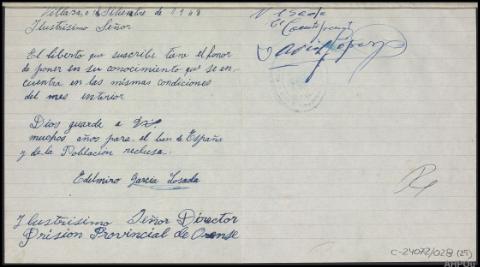 Setiembre de 1948
Ilustrisimo Señor
El liberto que suscribe tiene el honor
de poner en su conocimiento que se en-
cuentra en las mismas condiciones
del mes anterior
Dios guarde a
muchos años para el bien de España
y de la Población reclusa.
Edelmiro Garcia Losada
Ylustrisimo Señor Director
Prision Provincial de Orense
C-24072/028 (25)
AHPOu